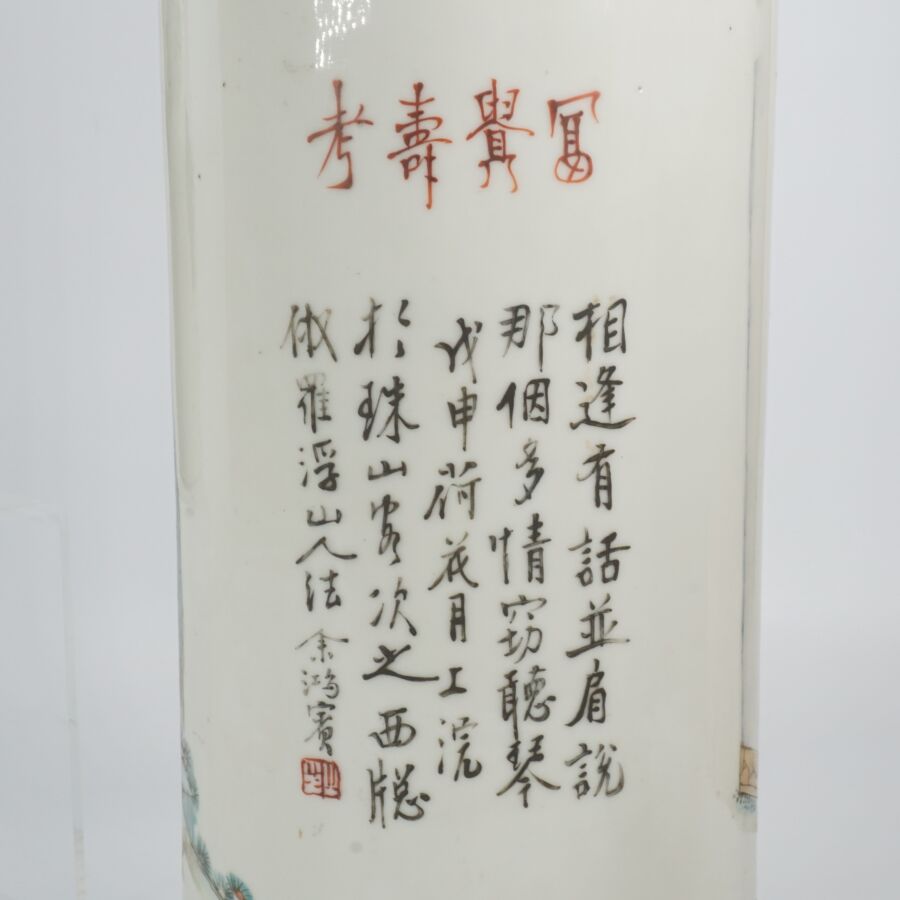 富貴壽考
相逢有話並肩說
那個多情窃聽琴
戊申荷花月上浣
於珠山客次之西牕
倣羅浮山人法
余鴻賓